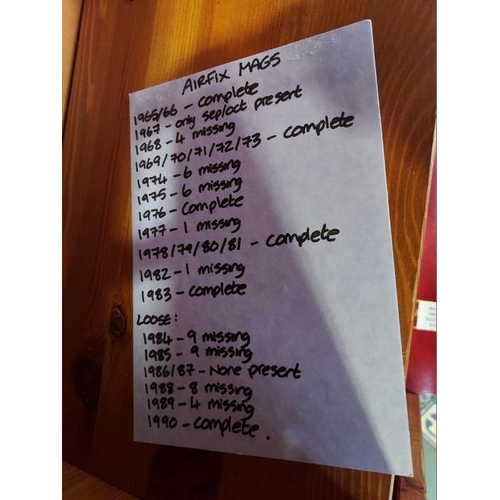 AIRFIX MAGS
1965/66 - complete
1967 - only sep/oct present
1968 - 4 missing
1969/70/71/72/73 - complete
1974 - 6 missing
1975 - 6 missing
1976 - complete
1977 - 1 missing
1978/79/80/81 - complete
1982 - 1 missing
1983 - complete
LOOSE:
1984 - 9 missing
1985 - 9 missing
1986/87 - None present
1988 - 8 missing
1989 - 4 missing
1990 - complete.